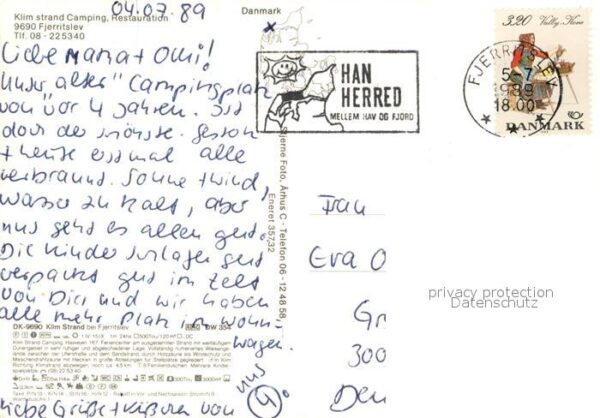 04.07.89
Klim strand Camping, Restauration
9690 Fjerritslev
Tlf. 08 - 225340
Danmark
Liebe Mama + Omi!
Unser "alter" Campingplatz
von vor 4 Jahren. Ist
doch der schönste. Gestern
+ heute erstmal alle
verbrannt. Sonne + Wind,
Wasser zu kalt, aber
uns geht es allen gut.
Die Kinder schlafen gut
verpackt gut im Zelt
von Dir und wir haben
alle mehr Platz im Wohn-
wagen.
Liebe Grüße + Küßchen von
uns 4
HAN
HERRED
MELLEM HAV OG FJORD
FJERRITSLEV
5-7
1989
18.00
3.20 Valby-Kone
DANMARK
Stjerne Foto, Århus C - Telefon 06 - 12 48 58,
Eneret 35732
Frau
Eva O
Gr
300
Den
privacy protection
Datenschutz
DK-9690 Klim Strand bei Fjerritslev
DW 354